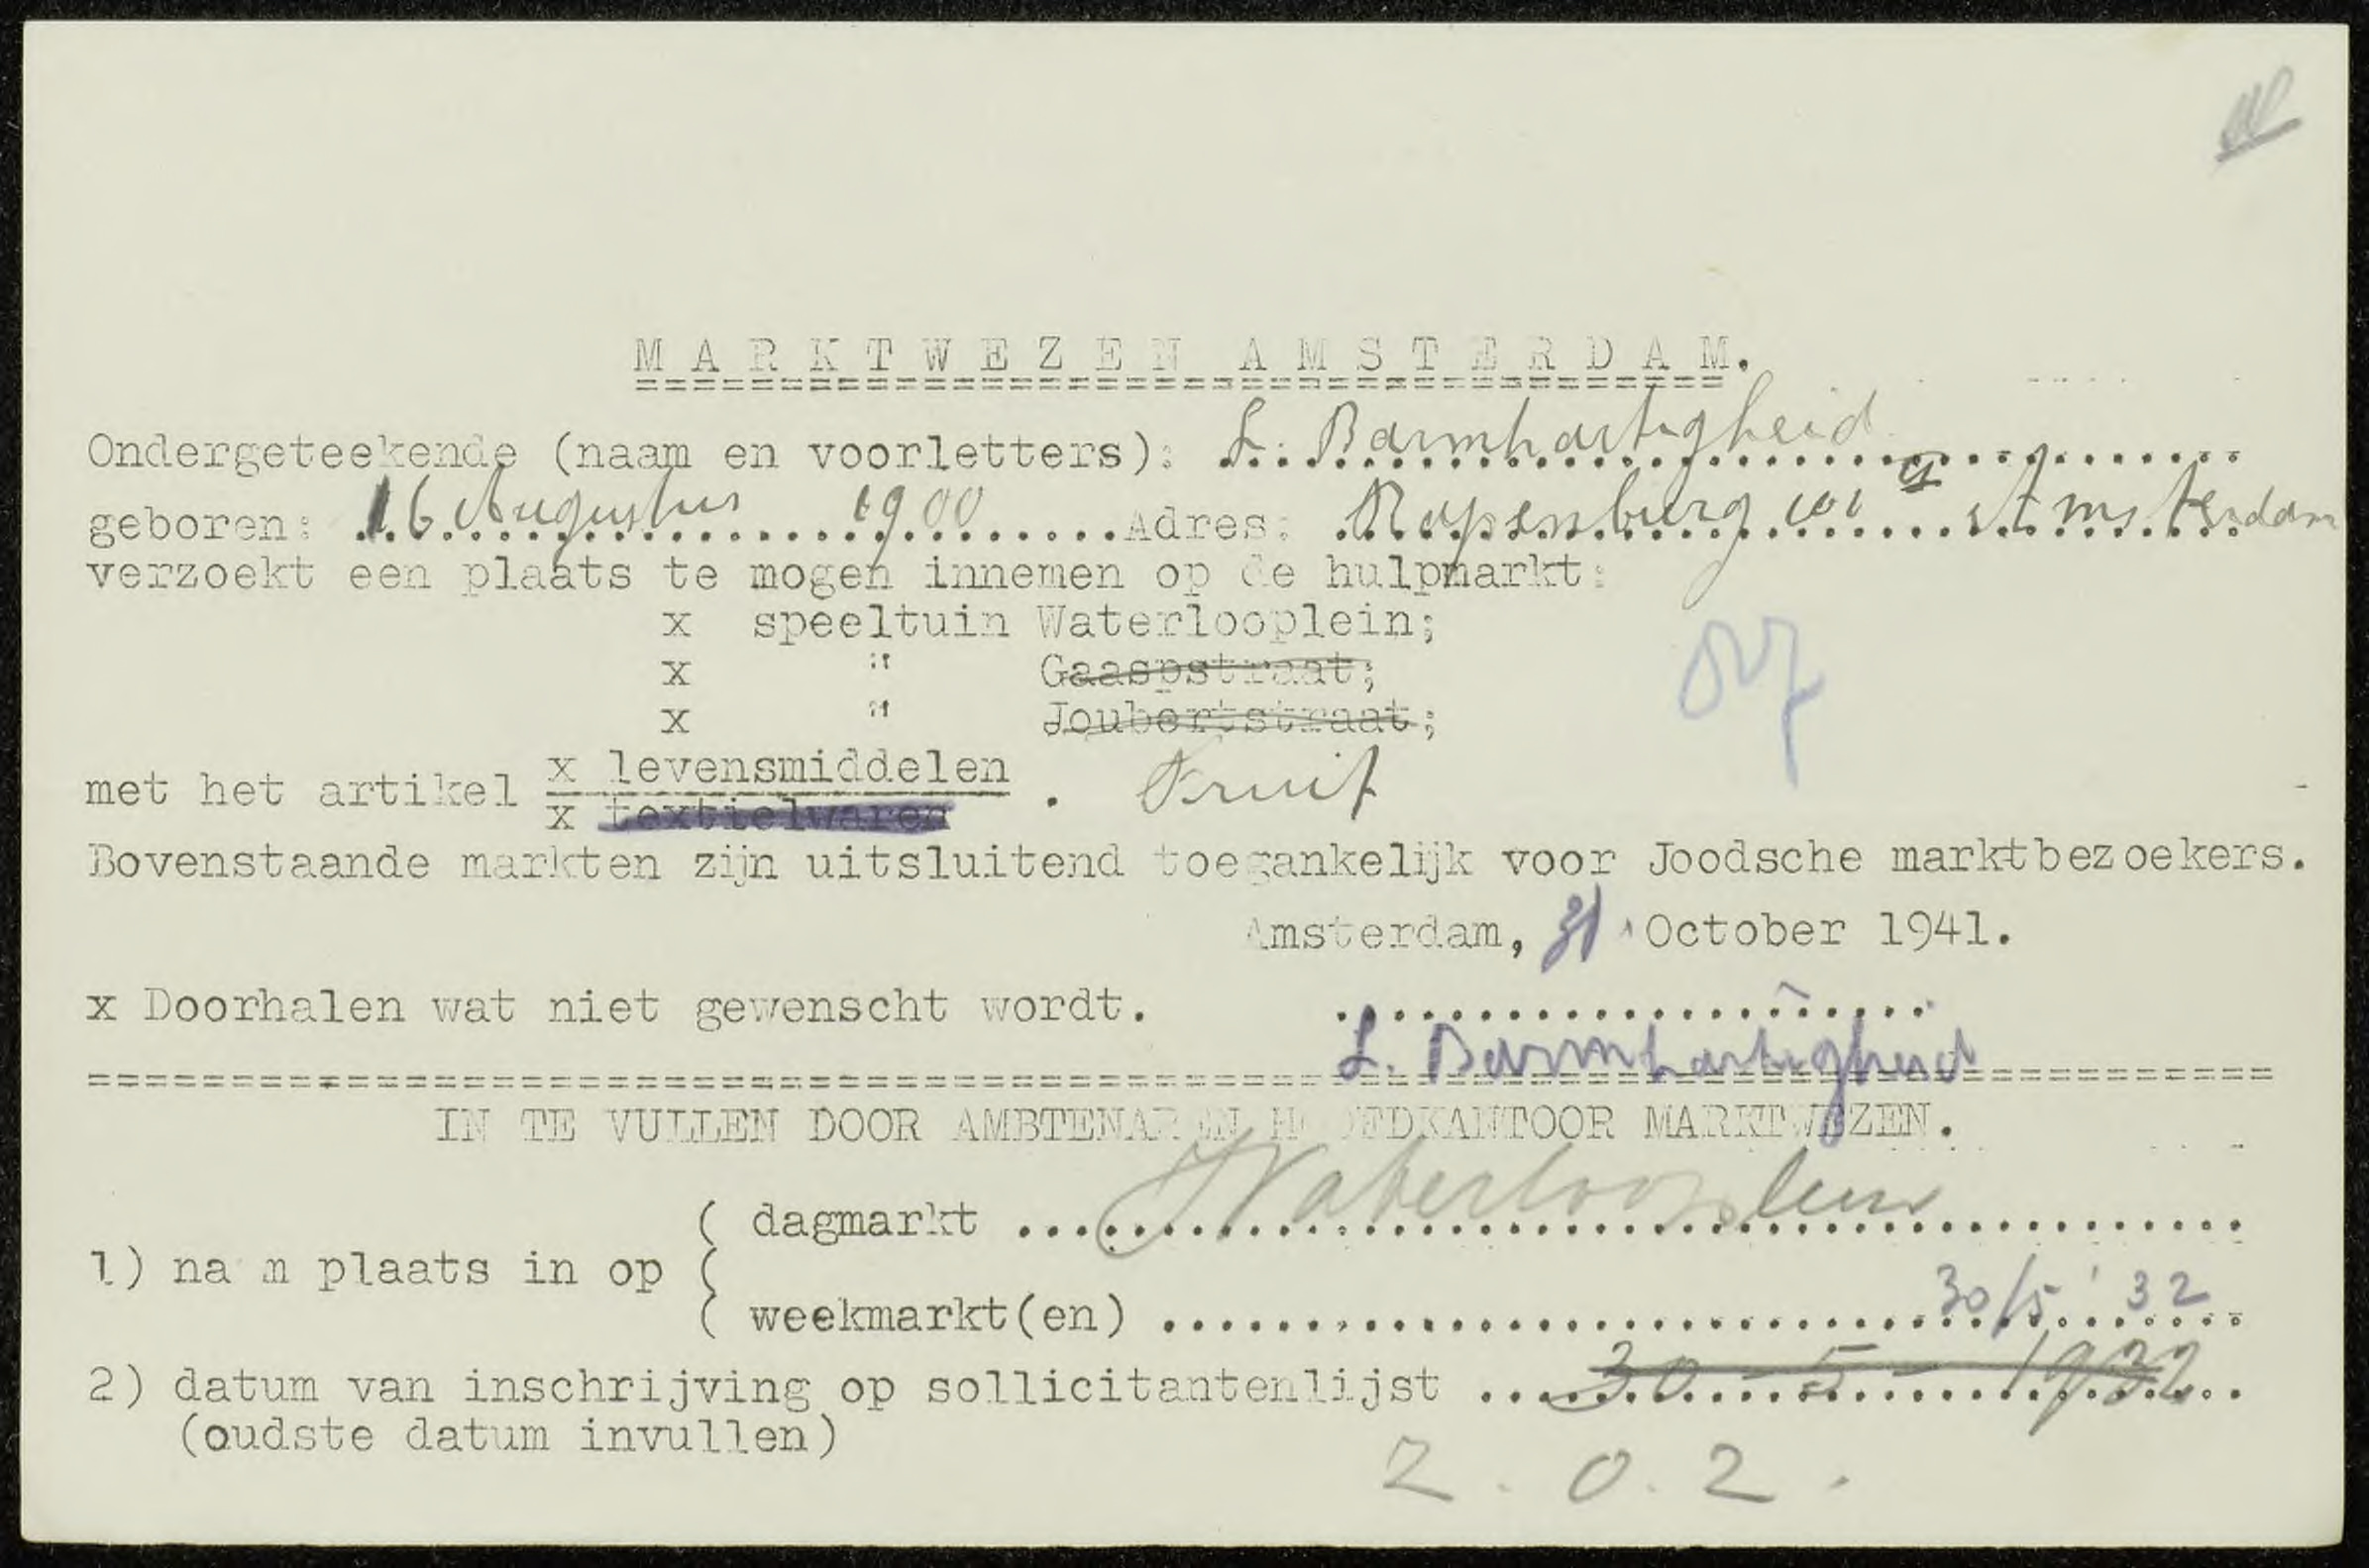 MARKTWEZEN AMSTERDAM.
Ondergeteekende (naam en voorletters): L. Barmhartigheid
geboren: 16 Augustus 1900 Adres: Rapenburg 101 Amsterdam
verzoekt een plaats te mogen innemen op de hulpmarkt:
x speeltuin Waterlooplein;
x " Gaaspstraat;
x " Joubertstraat;
met het artikel x levensmiddelen . Fruit
x textielwaren
Bovenstaande markten zijn uitsluitend toegankelijk voor Joodsche marktbezoekers.
Amsterdam, 31 October 1941.
x Doorhalen wat niet gewenscht wordt.
L. Barmhartigheid
IN TE VULLEN DOOR AMBTENAREN HOOFDKANTOOR MARKTWEZEN.
( dagmarkt Waterlooplein
1) nam plaats in op (
( weekmarkt(en) 30/5 '32
2) datum van inschrijving op sollicitantenlijst 30-5-1932
(oudste datum invullen)
Z.O.Z.